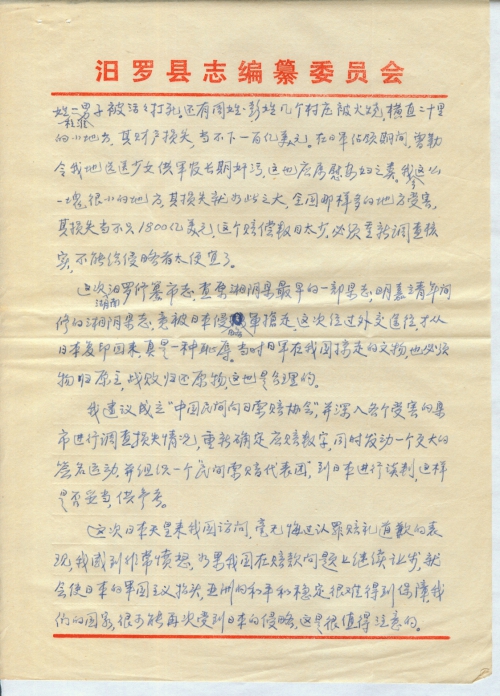 汨罗县志编纂委员会
姓二男子被活活打死,还有周姓、彭姓几个村庄被火烧,横直二十里
的小地方,其财产损失,当不下一百亿美元。在日军占领期间,曾勒
令我地选送少女供军发长期奸污,这也应属慰安妇之类。我这么
一块很小的地方,其损失就如此之大,全国那样多的地方受害,
其损失当不只1800亿美元,这个赔偿数目太少,必须重新调查核
实,不能给侵略者太便宜了。
这次汨罗修纂市志,查索湘阴县最早的一部县志,明嘉靖年间
湖南
修的湘阴县志,竟被日本侵军抢走,这次经过外交途径,才从
日本复印回来,真是一种耻辱。当时日军在我国掠走的文物,也必须
物归原主,战败归还原物,这也是合理的。
我建议成立“中国民间向日索赔协会”,并深入各个受害的县
市进行调查损失情况,重新确定应赔数字,同时发动一个更大的
签名运动,并组织一个“民间索赔代表团”,到日本进行谈判,这样
是否妥当,供参考。
这次日本天皇来我国访问,毫无悔过认罪赔礼道歉的表
现,我感到非常愤怒,如果我国在赔款问题上继续让步,就
会使日本的军国主义抬头,亚洲的和平和稳定很难得到保障,我
们的国家,很可能再次受到日本的侵略,这是很值得注意的。